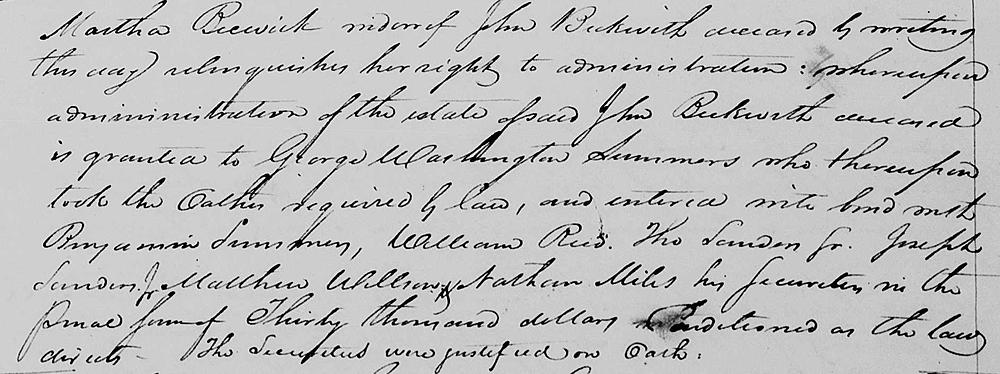 Martha Beewick widow of John Beckwith deceased by writing
this day relinquishes her right to administration: whereupon
admininistration of the estate of said John Beckwith deceased
is granted to George Washington Summers who thereupon
took the Oathes required by law, and entered into bond with
Benjamin Summers, William Reed. Tho Sanders Sr. Joseph
Sanders Jr Matthew Willson & Nathan Miles his Securities in the
penal sum of Thirty thousand dollars Conditioned as the law
directs - The Securities were justified on Oath: